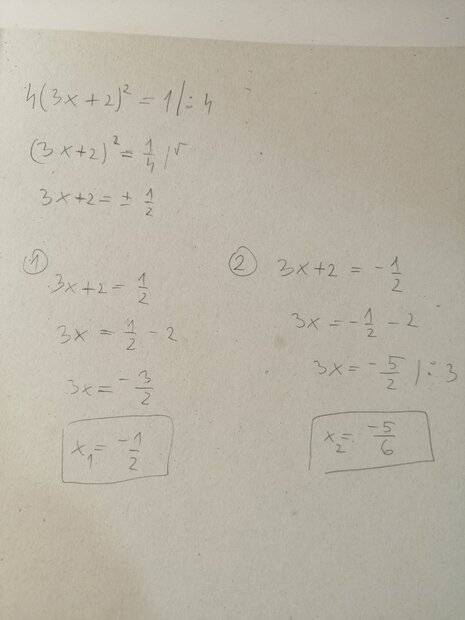 4(3x+2)² = 1 /:4
(3x+2)² = 1/4 /√
3x+2 = ± 1/2
①
3x+2 = 1/2
3x = 1/2 - 2
3x = -3/2
x₁ = -1/2
②
3x+2 = -1/2
3x = -1/2 - 2
3x = -5/2 /:3
x₂ = -5/6